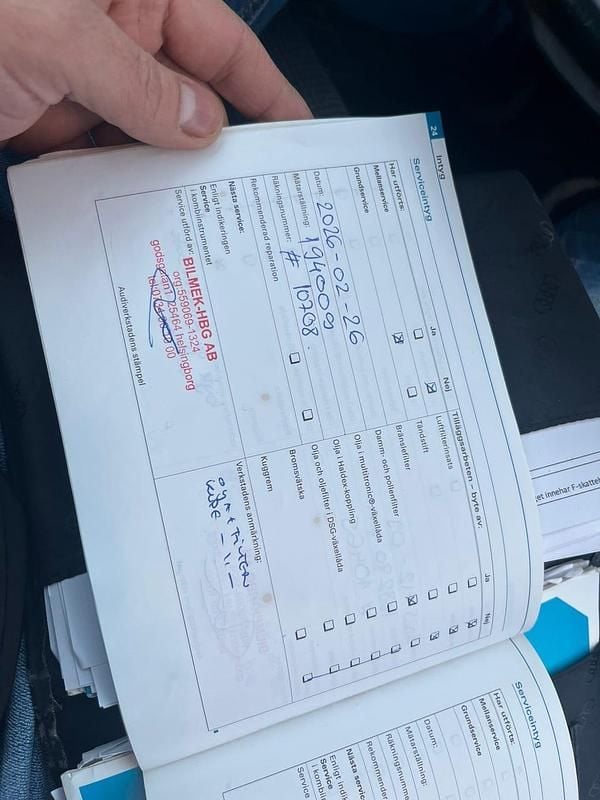 24
Intyg
Serviceintyg
Har utförts:
Ja
Nej
Mellanservice
Grundservice
Datum: 2026-02-26
Mätarställning: 194009
Räkningsnummer: # 10708.
Rekommenderad reparation
Nästa service:
Enligt indikeringen
Service
i kombiinstrumentet
Service utförd av:
BILMEK-HBG AB
org:559069-1324
25464 helsingborg
Audiverkstadens stämpel
Tilläggsarbeten – byte av:
Ja
Nej
Luftfilterinsats
Tändstift
Bränslefilter
Damm- och pollenfilter
Olja i multitronic®-växellåda
Olja i Haldex koppling
Olja och oljefilter i DSG-växellåda
Bromsvätska
Kuggrem
Verkstadens anmärkning:
et innehar F-skatte
Serviceintyg
Har utförts:
Mellanservice
Grundservice
Datum:
Mätarställning:
Räkningsnumm
Rekommender
Nästa service:
Enligt indike
Service
i kombiins
Service